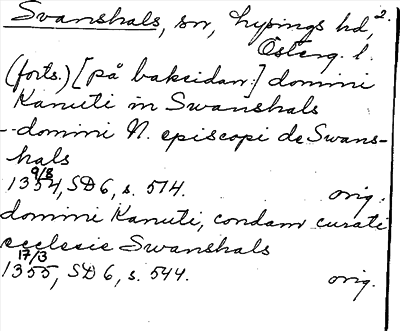 Svanshals, sn, Lysings hd, 2.
Österg. l.
(forts.) [på baksidan:] domini
Kanuti in Swanshals
- domini N. episcopi de Swans-
hals
9/8
1354, SD 6, s. 514. orig.
domini Kanuti, condam curati
ecclesie Swanshals
17/3
1355, SD 6, s. 544. orig.